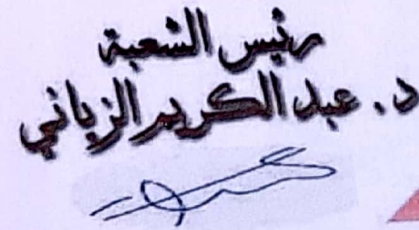 رئيس الشعبة
د. عبد الكريم الزياني